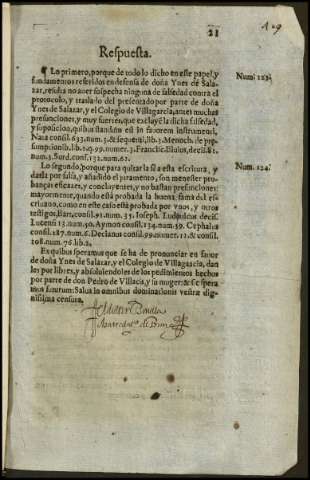 129
21
Respuesta.
¶ Lo primero, porque de todo lo dicho en este papel, y
fundamentos referidos en defensa de doña Ynes de Sala-
zar, resulta no auer sospecha ninguna de falsedad contra el
protocolo, y traslado del presentado por parte de doña
Ynes de Salazar, y el Colegio de Villagarcia, antes muchas
presunciones, y muy fuertes, que excluyē la dicha falsedad,
y suposicion, quibus standum est in fauorem instrumenti,
Natta consil. 633. num. 3. & sequenti, lib. 3. Menoch. de præ-
sumptionib. lib.
num. 3. Surd. cons. 132. num. 62.
Num: 123.
Lo segundo, porque para quitar la fè a esta escritura, y
darla por falsa, y añadido el juramento, son menester pro-
banças eficazes, y concluyentes, y no bastan presunciones:
mayormente, quando està probada la buena fama del es-
criuano, como en este caso està probada por vnos, y otros
testigos,
Num. 124.
Ex quibus speramus que se ha de pronunciar en fauor
de doña Ynes de Salazar, y el Colegio de Villagarcia, dan
los por libres, y absoluiendoles de los pedimientos hechos
por parte de don Pedro de Villacis, y su muger; & sic spera
mus futurum: Salua in omnibus dominationis vestræ dig-
nissima censura.